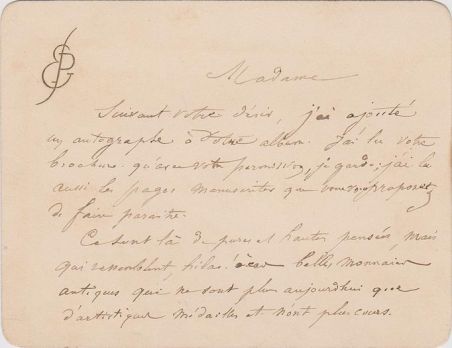 Madame
Suivant votre désir, j'ai ajouté
un autographe à votre album. J'ai lu votre
brochure qu'avec votre permission, je garde; j'ai lu
aussi les pages manuscrites que vous vous proposez
de faire paraitre.
Ce sont là de pures et hautes pensées, mais
qui ressemblent, hélas! à ces belles monnaies
antiques qui ne sont plus aujourd'hui que
d'artistiques médailles et n'ont plus cours.